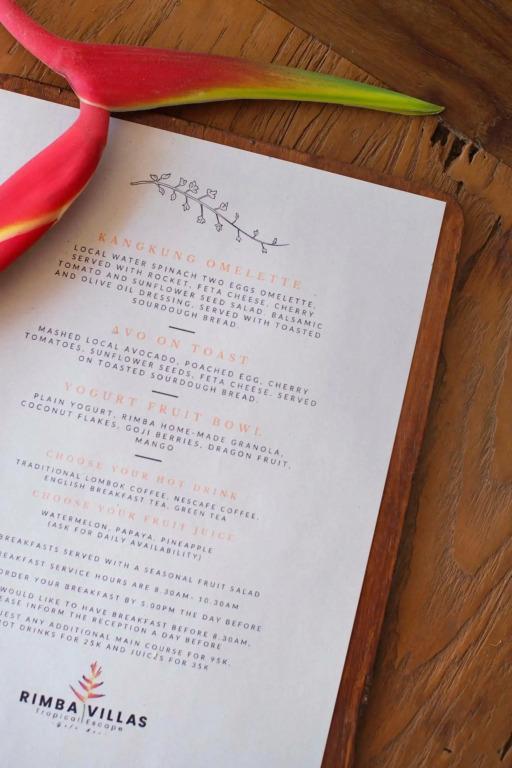 KANGKUNG OMELETTE
LOCAL WATER SPINACH TWO EGGS OMELETTE,
SERVED WITH ROCKET, FETA CHEESE, CHERRY
TOMATO AND SUNFLOWER SEED SALAD, BALSAMIC
AND OLIVE OIL DRESSING, SERVED WITH TOASTED
SOURDOUGH BREAD
AVO ON TOAST
MASHED LOCAL AVOCADO, POACHED EGG, CHERRY
TOMATOES, SUNFLOWER SEEDS, FETA CHEESE, SERVED
ON TOASTED SOURDOUGH BREAD.
YOGURT FRUIT BOWL
PLAIN YOGURT, RIMBA HOME-MADE GRANOLA,
COCONUT FLAKES, GOJI BERRIES, DRAGON FRUIT,
MANGO
CHOOSE YOUR HOT DRINK
TRADITIONAL LOMBOK COFFEE, NESCAFE COFFEE,
ENGLISH BREAKFAST TEA, GREEN TEA
CHOOSE YOUR FRUIT JUICE
WATERMELON, PAPAYA, PINEAPPLE
(ASK FOR DAILY AVAILABILITY)
BREAKFASTS SERVED WITH A SEASONAL FRUIT SALAD
BREAKFAST SERVICE HOURS ARE 8.30AM- 10.30AM
ORDER YOUR BREAKFAST BY 5:00PM THE DAY BEFORE
WOULD LIKE TO HAVE BREAKFAST BEFORE 8.30AM,
INFORM THE RECEPTION A DAY BEFORE
ANY ADDITIONAL MAIN COURSE FOR 95K,
HOT DRINKS FOR 25K AND JUICES FOR 35K
RIMBA VILLAS
Tropical Escape